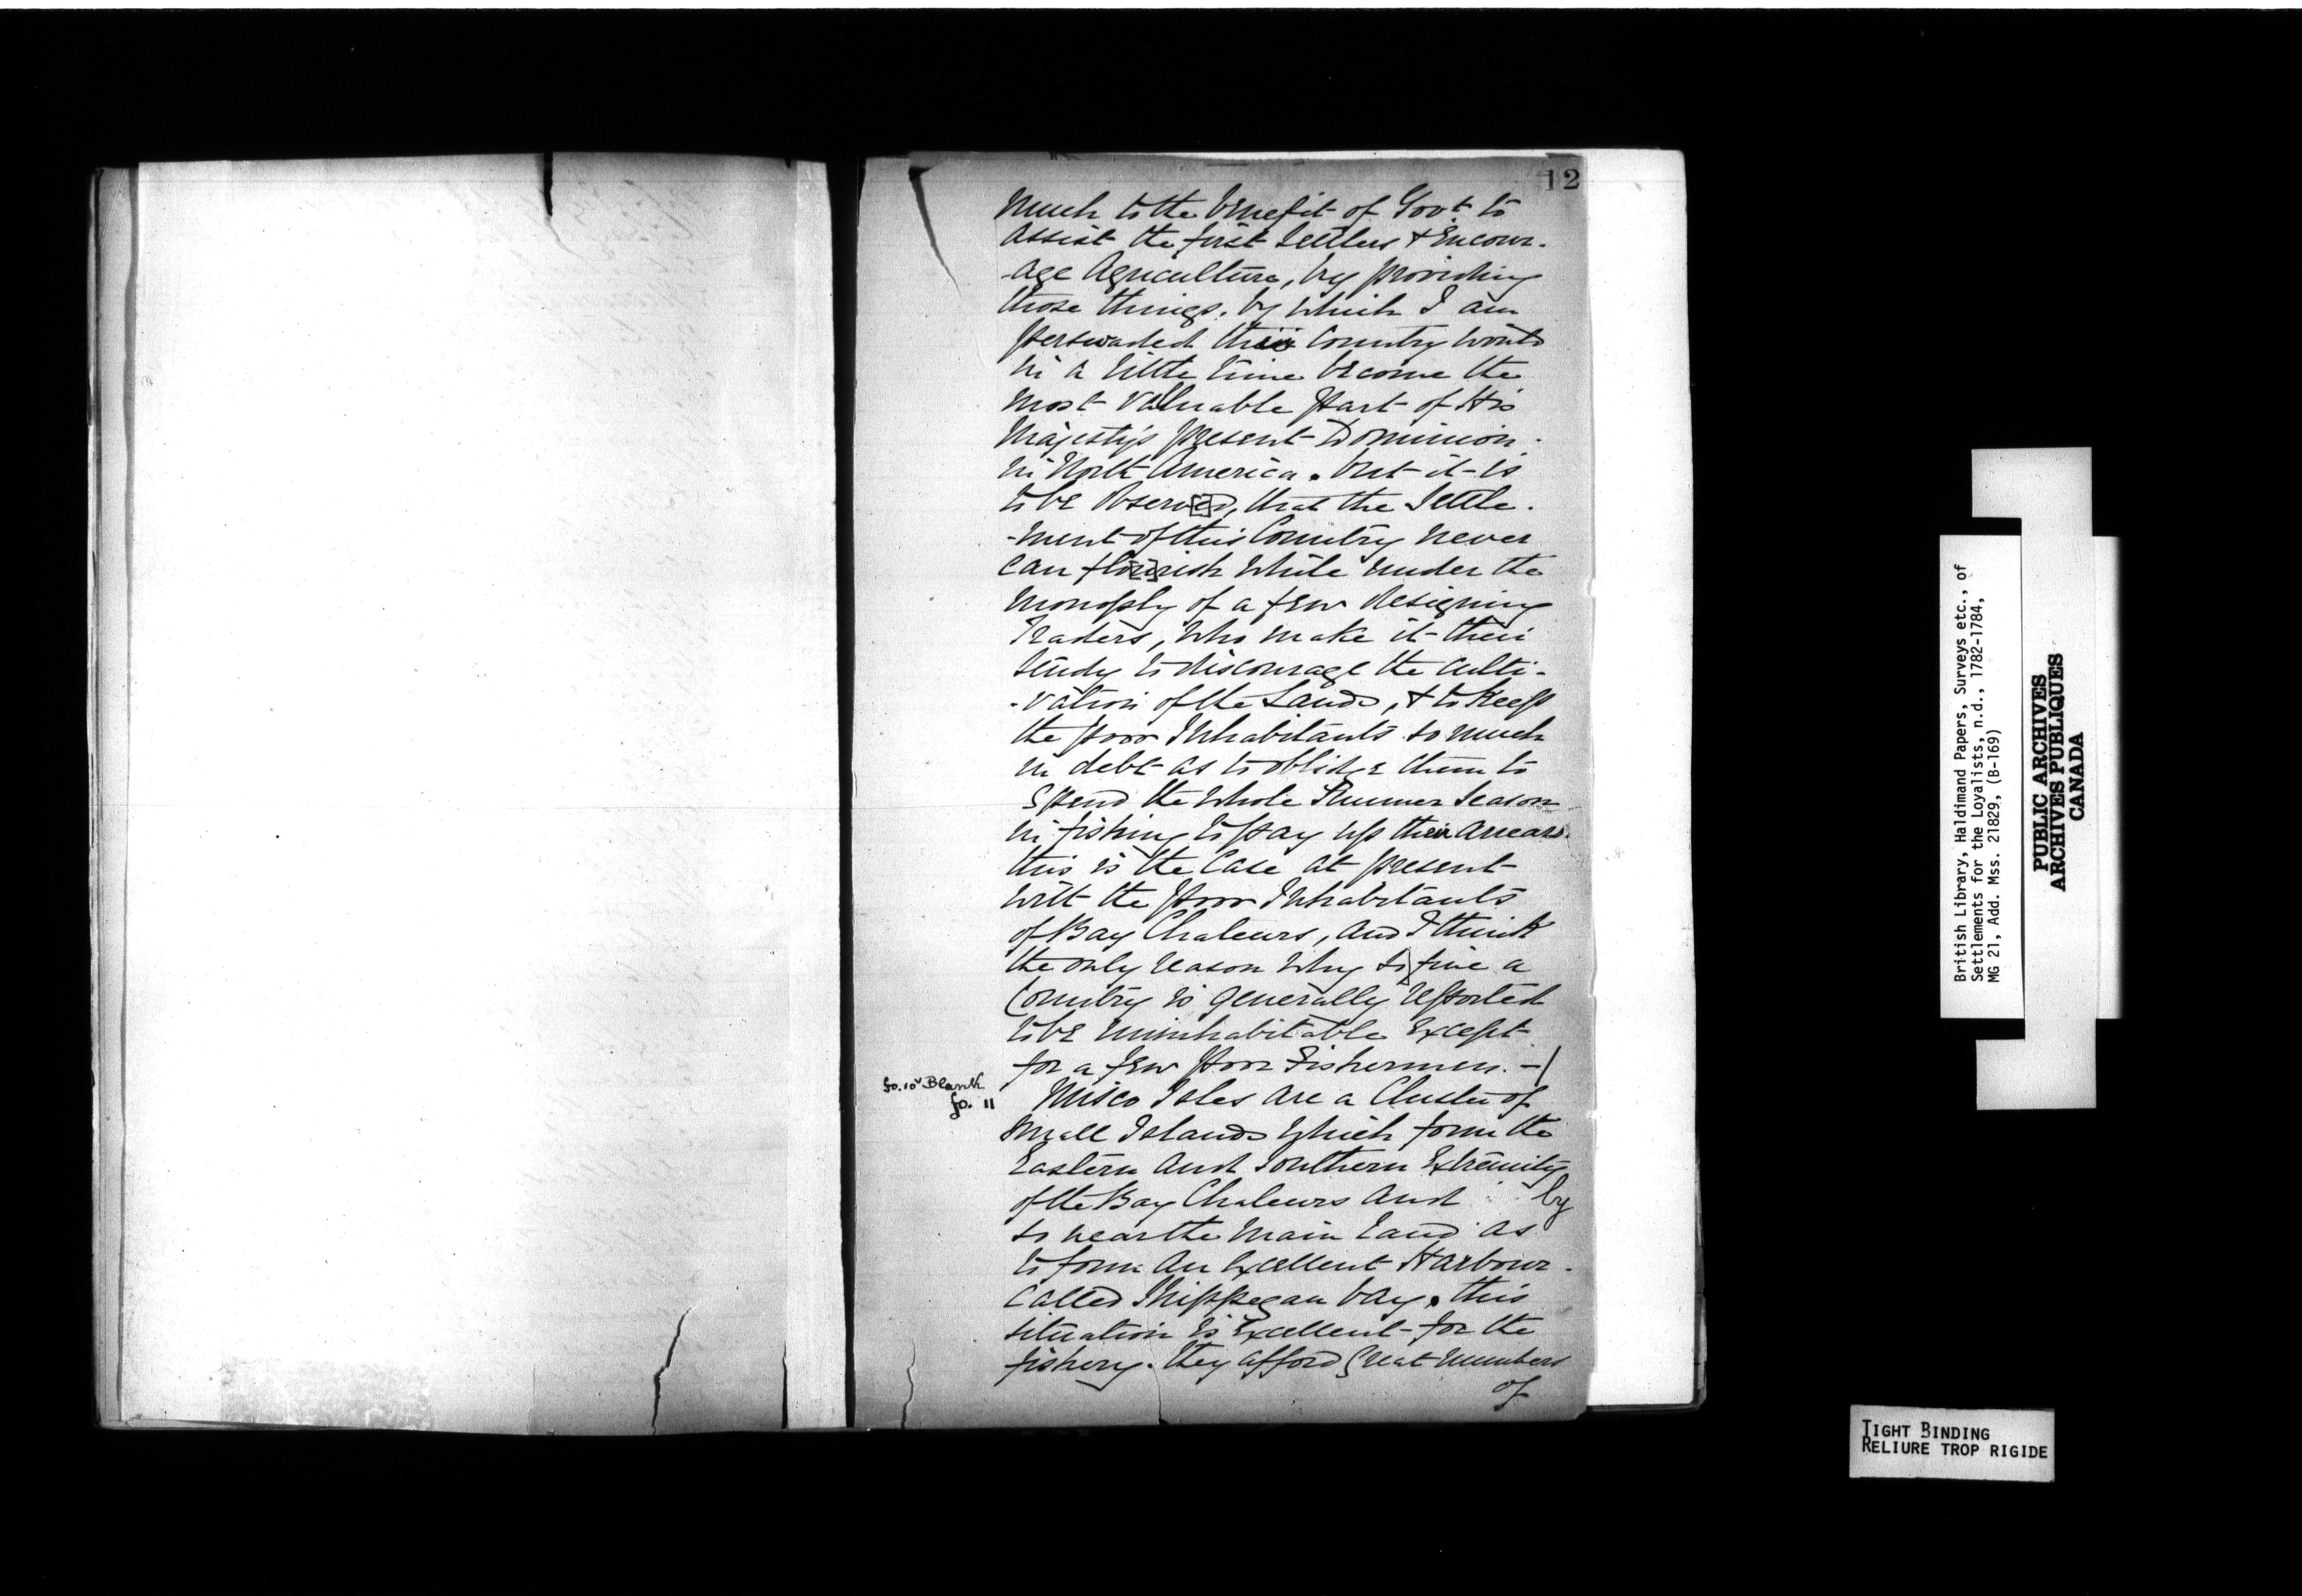 12
Much to the benefit of Govt to
assist the first Settlers & Encour-
-age Agriculture, by providing
those things, by which I am
perswaded this Country would
in a little time become the
most valluable part of His
Majesty's present Dominion.
in North America. but it is
to be Observed, that the Settle-
-ment of this Country never
can flourish while under the
monoply of a few designing
Traders, who make it their
study to discourage the culti-
-vation of the Lands, & to keep
the poor Inhabitants so much
in debt as to oblidge them to
spend the whole Summer Season
in fishing to pay up their arrears.
this is the Case at present
with the poor Inhabitants
of Bay Chaleurs, and I think
the only reason why so fine a
Country is generally reported
to be uninhabitable except
for a few poor Fishermen. -/
fo. 10v Blank
fo. 11
Misco Isles are a Cluster of
small Islands which form the
Eastern and Southern Extremity
of the Bay Chaleurs and by
so near the Main Land as
to form an Excellent Harbour.
called Shippegan bay. this
situation is Excellent for the
fishery. they afford great numbers
of
British Library, Haldimand Papers, Surveys etc., of
Settlements for the Loyalists, n.d., 1782-1784,
MG 21, Add. Mss. 21829, (B-169)
PUBLIC ARCHIVES
ARCHIVES PUBLIQUES
CANADA
TIGHT BINDING
RELIURE TROP RIGIDE